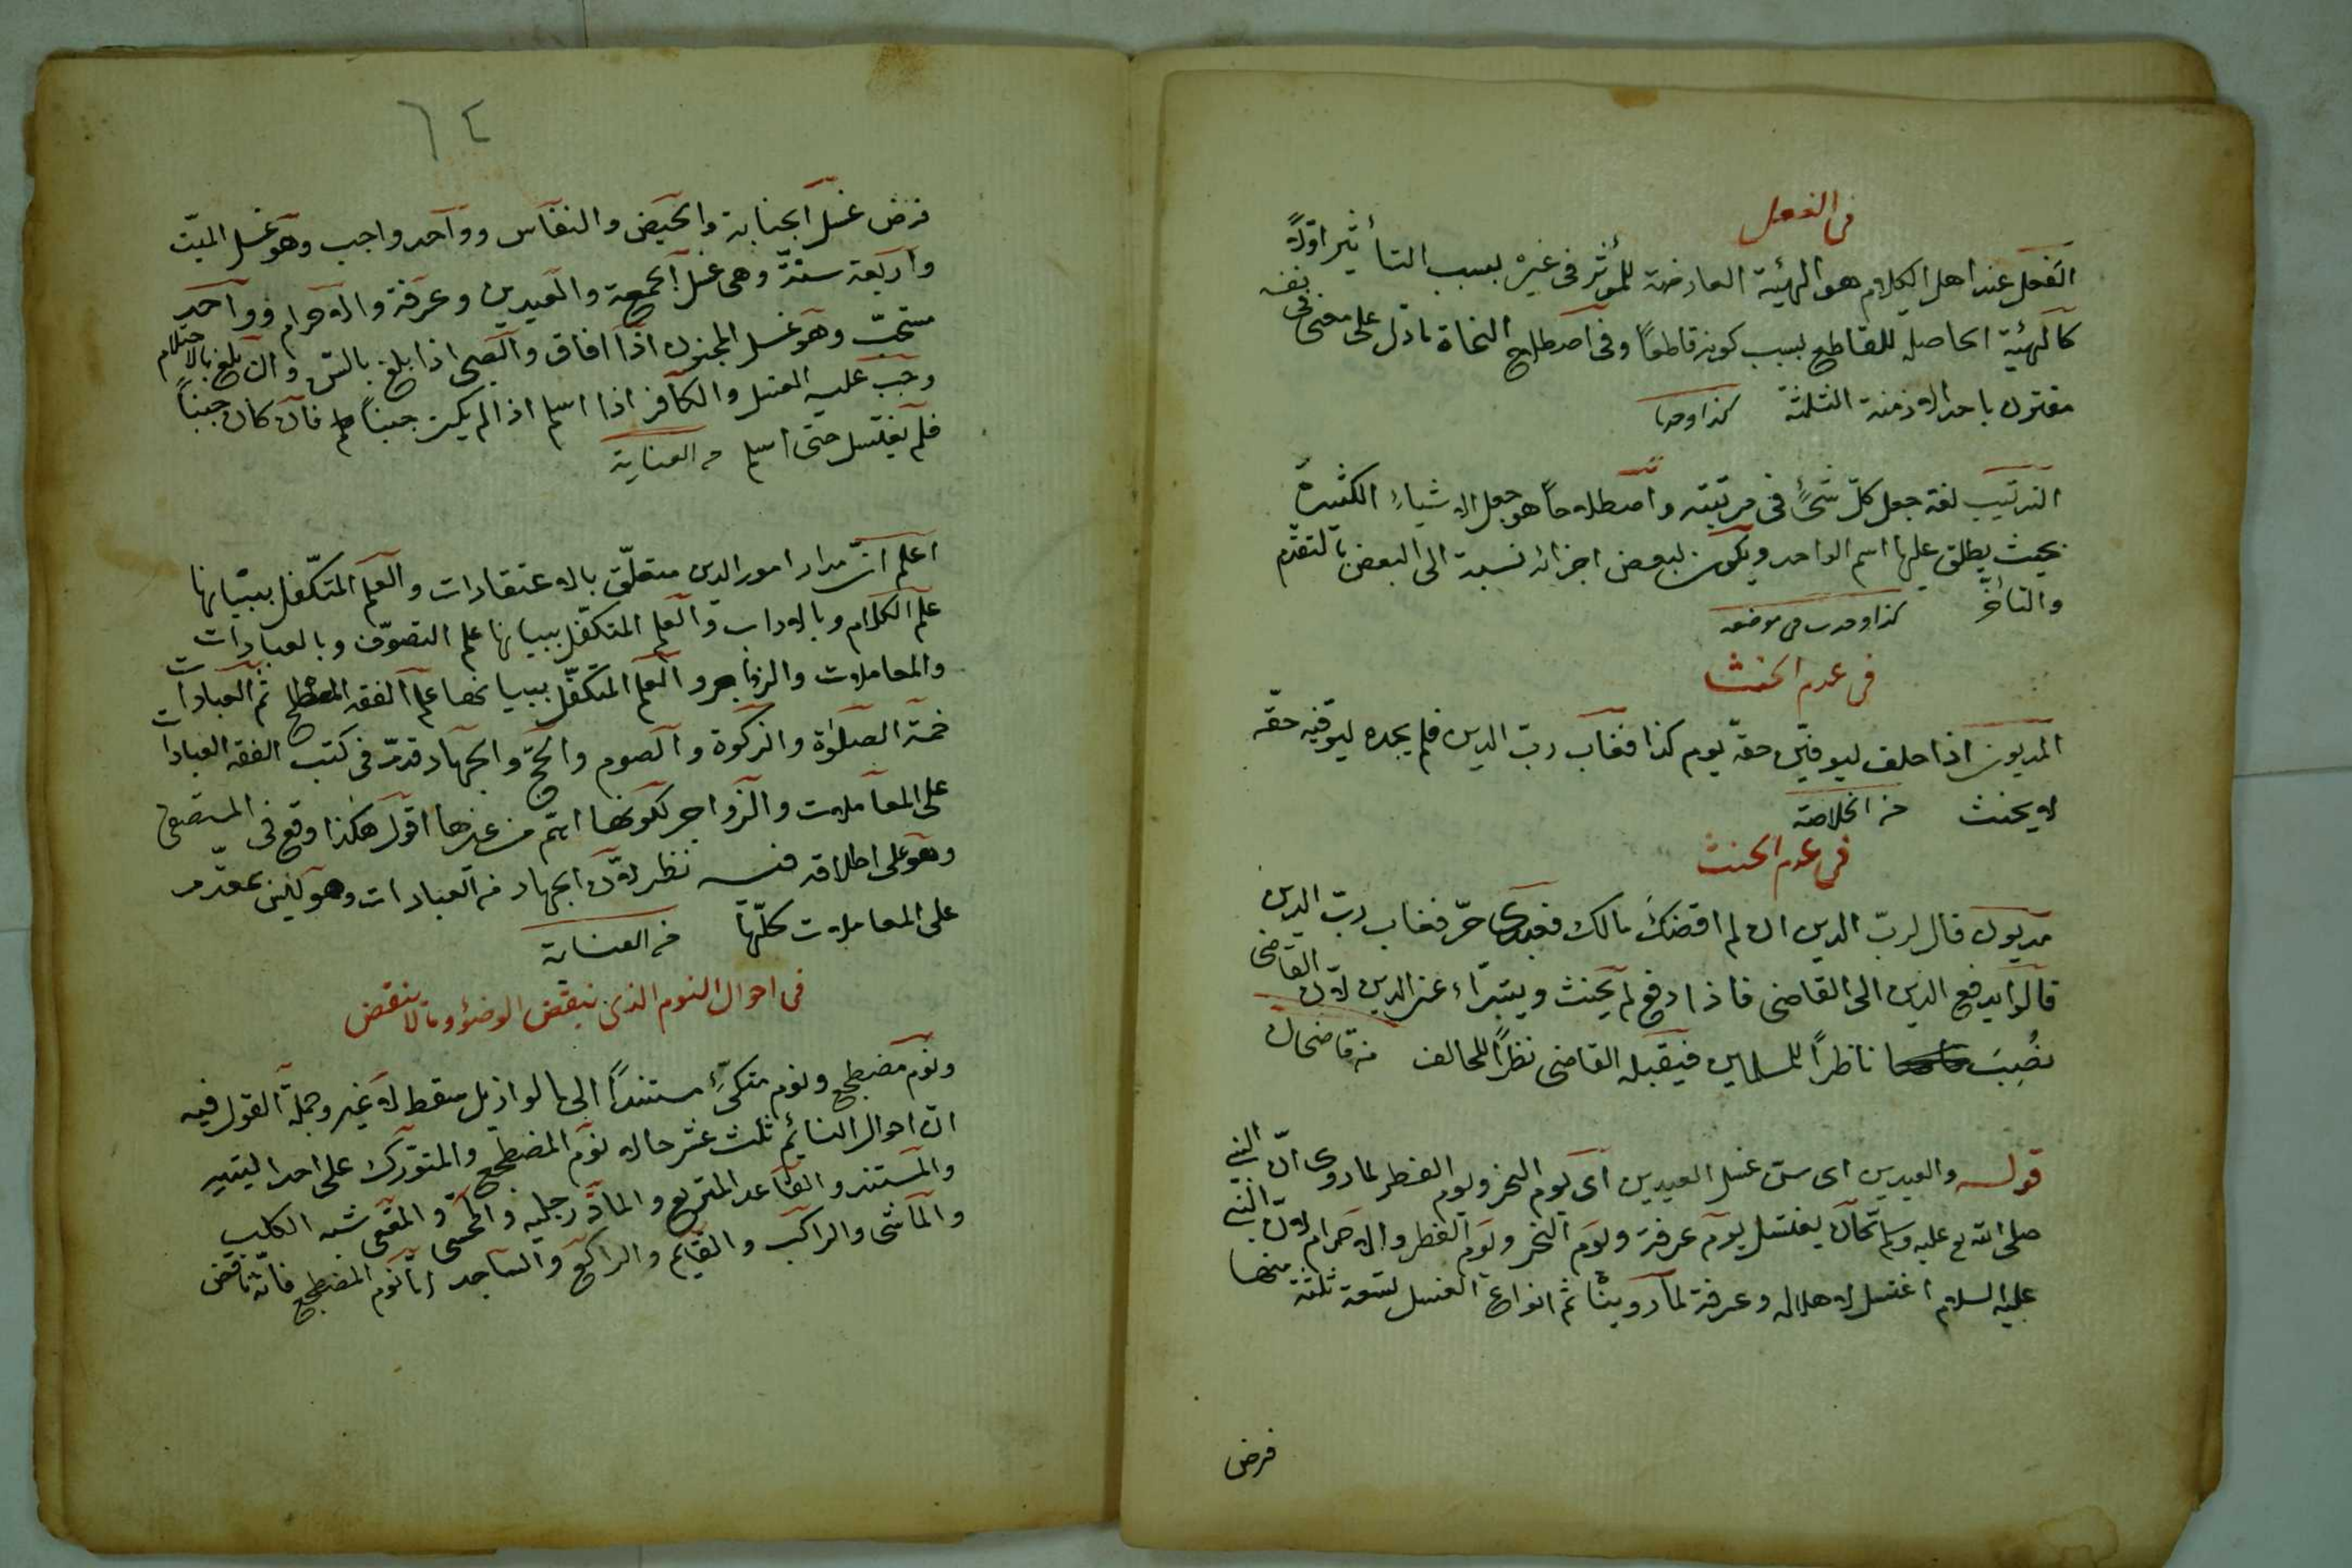 فى الفعل
الفعل عند اهل الكلام هو الهيئة العارضة للمؤثر فى غيره بسبب التأثير اوّلاً
كالهيئة الحاصلة للقاطع بسبب كونه قاطعاً وفى اصطلاح النحاة ما دل على معنى فى نفسه
مقترن باحد الازمنة الثلثة كذا وجد
الترتيب لغة جعل كلّ شئ فى مرتبته واصطلاحاً هو جعل الاشياء الكثيرة
بحيث يطلق عليها اسم الواحد ويكون لبعض اجزائه نسبة الى البعض بالتقدّم
والتأخّر كذا وجدت فى موضعه
فى عدم الحنث
المديون اذا حلف ليوفيّن حقه يوم كذا فغاب ربّ الدين فلم يجده ليوفيه حقّه
لا يحنث من الخلاصة
فى عدم الحنث
مديون قال لربّ الدين ان لم اقضك مالك فعبدى حرّ فغاب ربّ الدين
قالوا يدفع الدين الى القاضى فاذا دفع لم يحنث ويتبرّاء عن الدين لانّ القاضى
نُصِبَ ناظراً للمسلمين فيقبله القاضى نظراً للحالف من قاضيخان
قوله والعيدين اى سنّ غسل العيدين اى يوم النحر ويوم الفطر لما روى انّ النبى
صلى الله تع عليه وسلم كان يغتسل يوم عرفة ويوم النحر ويوم الفطر والاحرام لانّ النبى
عليه السلام اغتسل لاهلاله وعرفة لما روينا ثم انواع الغسل تسعة ثلثة منها
فرض
٦٤
فرض غسل الجنابة والحيض والنفاس وواحد واجب وهو غسل الميّت
واربعة سنّة وهى غسل الجمعة والعيدين وعرفة والاحرام وواحد
مستحبّ وهو غسل المجنون اذا افاق والصبى اذا بلغ بالسن وان بلغ بالاحتلام
وجب عليه الغسل والكافر اذا اسلم اذا لم يكن جنباً فان كان جنباً
فلم يغتسل حتى اسلم من العناية
اعلم انّ مدار امور الدين متعلّق بالاعتقادات والعلم المتكفّل ببيانها
علم الكلام وبالاداب والعلم المتكفّل ببيانها علم التصوّف وبالعبادات
والمعاملات والزواجر والعلم المتكفّل ببيانها علم الفقه المصطلح ثم العبادات
خمسة الصلوٰة والزكوة والصوم والحج والجهاد قدّم فى كتب الفقه العبادات
على المعاملات والزواجر لكونها اهمّ من غيرها اقول هكذا وقع فى المستصفى
وهو على اطلاقه فيه نظر لانّ الجهاد من العبادات وهو ليس بمقدّم
على المعاملات كلّها من العناية
فى احوال النوم الذى ينقض الوضوء وما لا ينقض
ونوم مضطجع ونوم متكئ مستنداً الى ما لو ازيل سقط لا غير وجملة القول فيه
ان احوال النائم ثلث عشر حالا نوم المضطجع والمتورّك على احد اليتيه
والمستند والقاعد المتربع والمادّ رجليه والمقعى شبه الكلب
والماشى والراكب والقائم والراكع والساجد امّا نوم المضطجع فانّه ناقض